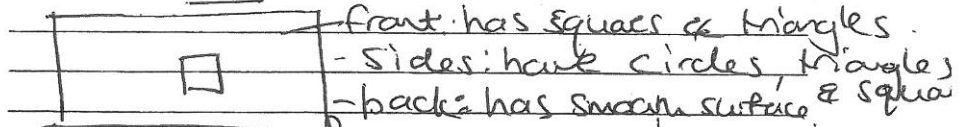 front: has squaes & triangles.
- Sides: have circles, triangles
& squa
- back: has smooth surface